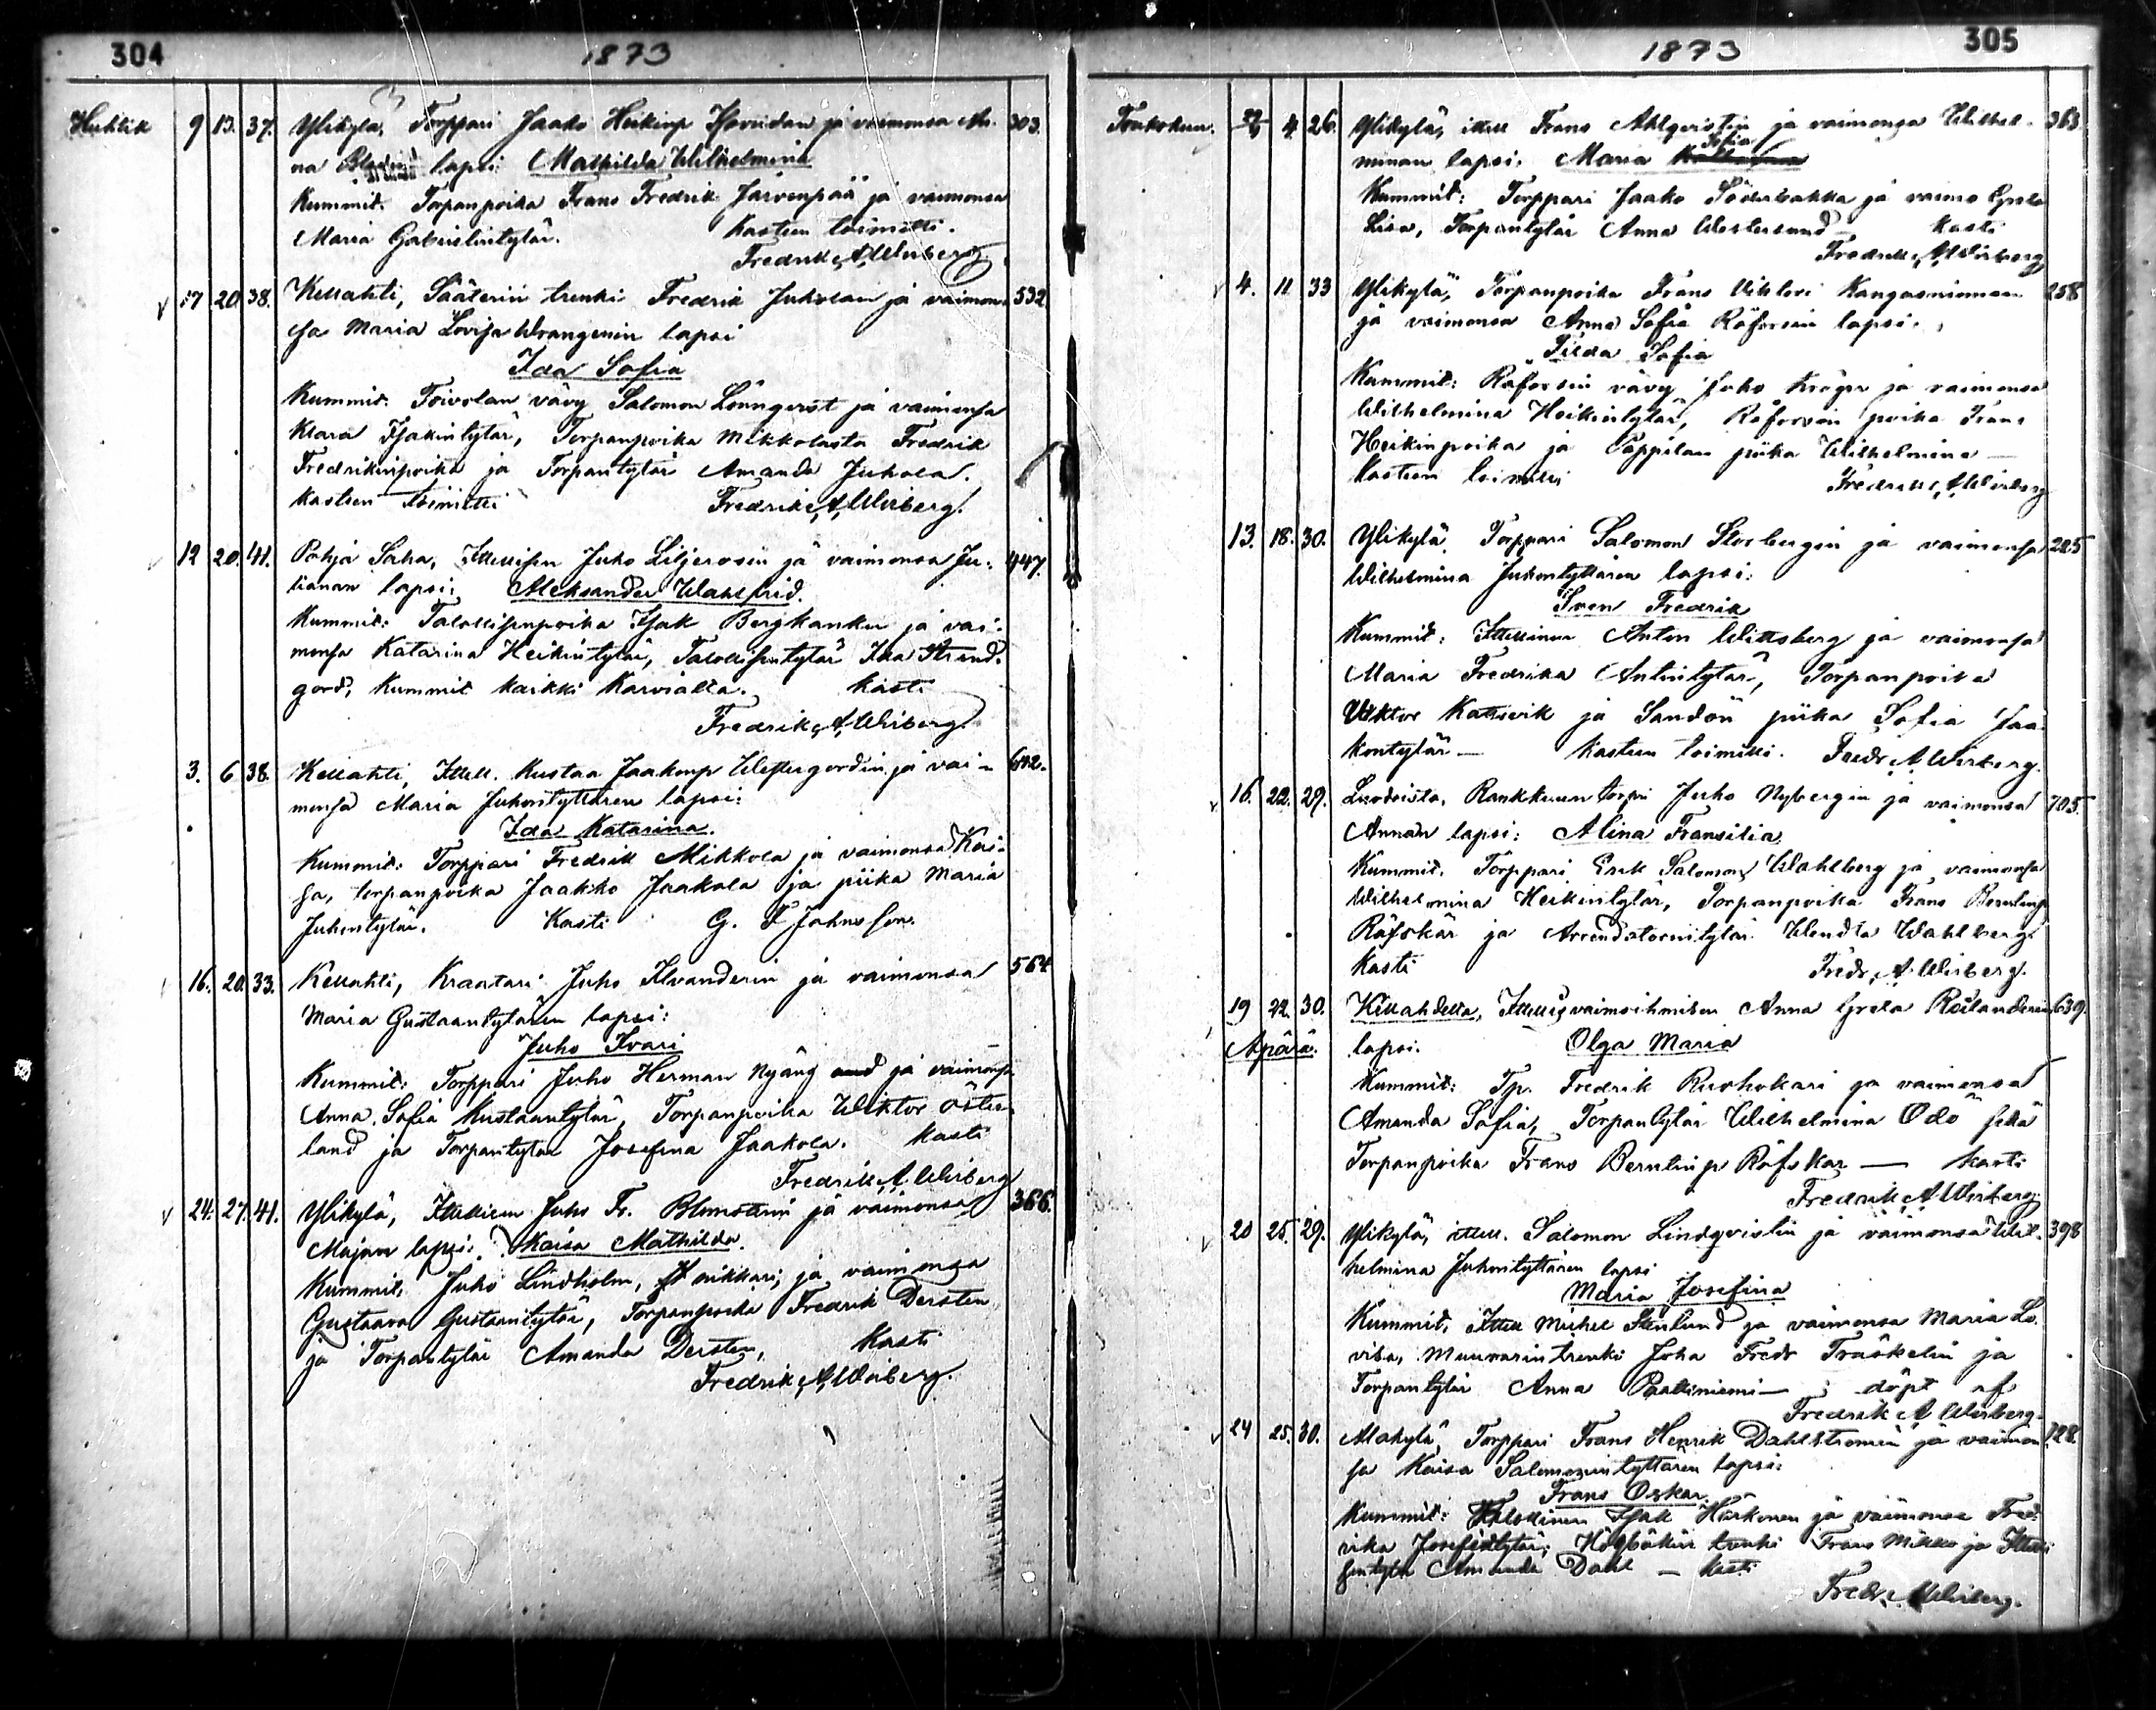 304
1873
Huhtik 9 13. 37. Ylikylä, Torppari Jaako Heikinp ja vaimonsa An- 303.
na lapsi: Mathilda Wilhelmina
Kummit. Torpanpoika Frans Fredrik Järvenpää ja vaimonsa
Maria Gabrielintytär. Kasteen toimitti.
Fredrik A Wirberg.
17 20 38. Kellahti, Sääterin trenki Fredrik Juholan ja vaimon- 532
sa Maria Lovisa Wrangenin lapsi
Ida Sofia
Kummit. Toivolan vävy Salomon Lönnqvist ja vaimonsa
Klara Isakintytär, Torpanpoika Mikkolasta Fredrik
Fredrikinpoika ja Torpantytär Amanda Juhola.
Kasteen toimitti Fredrik A Wirberg.
12 20 41. Pohja Saha, Itsellisen Juho Liljerosin ja vaimonsa Ju- 947.
lianan lapsi: Aleksander Wahlfrid.
Kummit: Talollisenpoika Isak Bergkanku ja vai-
monsa Katarina Heikintytär, Talollisentytär Ida Strand-
gord, Kummit kaikki Karvialta. Kasti
Fredrik A Wirberg.
3. 6 38. Kellahti, Itsell. Kustaa Jaakonp Westergordin ja vai- 642.
monsa Maria Juhontyttären lapsi:
Ida Katarina.
Kummit: Torppari Fredrik Mikkola ja vaimonsa Kai-
sa, torpanpoika Jaakko Jaakola ja piika Maria
Juhontytär. Kasti G. F Johnsson.
16. 20. 33. Kellahti, Kraatari Juho Ilvanderin ja vaimonsa 564
Maria Gustaantytären lapsi:
Juho Ivari
Kummit: Torppari Juho Herman Nyäng ja vaimonsa
Anna Sofia Kustaantytär, Torpanpoika Wiktor Öster-
land ja Torpantytär Josefina Jaakola. Kasti
Fredrik A Wirberg
24. 27. 41. Ylikylä, Itsellisen Juho Fr. Blomsterin ja vaimonsa 366.
Majan lapsi: Kaisa Mathilda.
Kummit, Juho Lindholm, ja vaimonsa
Gustaava Gustaantytär, Torpanpoika Fredrik Dersten
ja Torpantytär Amanda Dersten, Kasti
Fredrik A Wirberg.
305
1873
Toukokuu. 4. 26. Ylikylä, itsell Frans Ahlqvistin ja vaimonsa Wilhel- 363
Sofia
minan lapsi. Maria
Kummit: Torppari Jaako Söderbakka ja vaimo Greta
Lisa, Torpantytär Anna Westersund Kasti
Fredrik A Wirberg
4. 11 33 Ylikylä, Torpanpoika Frans Viktori Kangasniemen 258
ja vaimonsa Anna Sofia Räforsin lapsi.
Tilda Sofia
Kummit: Räforsin vävy Juho Kröger ja vaimonsa
Wilhelmina Heikintytär, Räforsin poika Frans
Heikinpoika ja Pappilan piika Wilhelmina —
Kasteen toimitti Fredrik A Wirberg
13. 18. 30. Ylikylä Torppari Salomon Storbergin ja vaimonsa 225
Wilhelmina Juhontyttären lapsi:
Sven Fredrik
Kummit: Itsellinen Anton Wittsberg ja vaimonsa
Maria Fredrika Antintytär, Torpanpoika
Viktor ja Sandön piika Sofia Jaa-
kontytär — Kasteen toimitti. Fredr A Wirberg.
16. 22. 29. Luodoista, Rankkuun torpri Juho Nybergin ja vaimonsa 705.
Annan lapsi: Alina Fransilia
Kummit. Torppari Erik Salomon Wahlberg ja vaimonsa
Wilhelmina Heikintytär, Torpanpoika Frans Berntinp
Räfskär ja Arrendatorintytär Wendla Wahlberg.
Kasti Fredr. A. Wirberg.
19 22. 30. Kellahdella, Itsellis vaimoihmisen Anna Greta Rölanderin 639.
Äpärä. lapsi. Olga Maria
Kummit: Tp. Fredrik Ruohokari ja vaimonsa
Amanda Sofia, Torpantytär Wilhelmina Ödö sekä
Torpanpoika Frans Berntinp Räfskär — Kasti
Fredrik A Wirberg.
20 25. 29. Ylikylä, itsell. Salomon Lindqvistin ja vaimonsa Wil- 398
helmina Juhontyttären lapsi
Maria Josefina
Kummit, Itsell Michel Stenlund ja vaimonsa Maria Lo-
visa, Muurarin trenki Joha Fredr Träskelin ja
Torpantytär Anna Paakkiniemi — döpt af
Fredrik A Wirberg.
24 25. 30. Alakylä, Torppari Frans Henrik Dahlströmin ja vaimon- 128.
sa Kaisa Salomonintyttären lapsi:
Frans Oskar.
Kummit: Talollinen Isak Härkonen ja vaimonsa Fred-
rika Josefintytär, trenki Frans Mikko ja Itselli-
sentytär Amanda Dahl — Kasti
Fredr. A Wirberg.